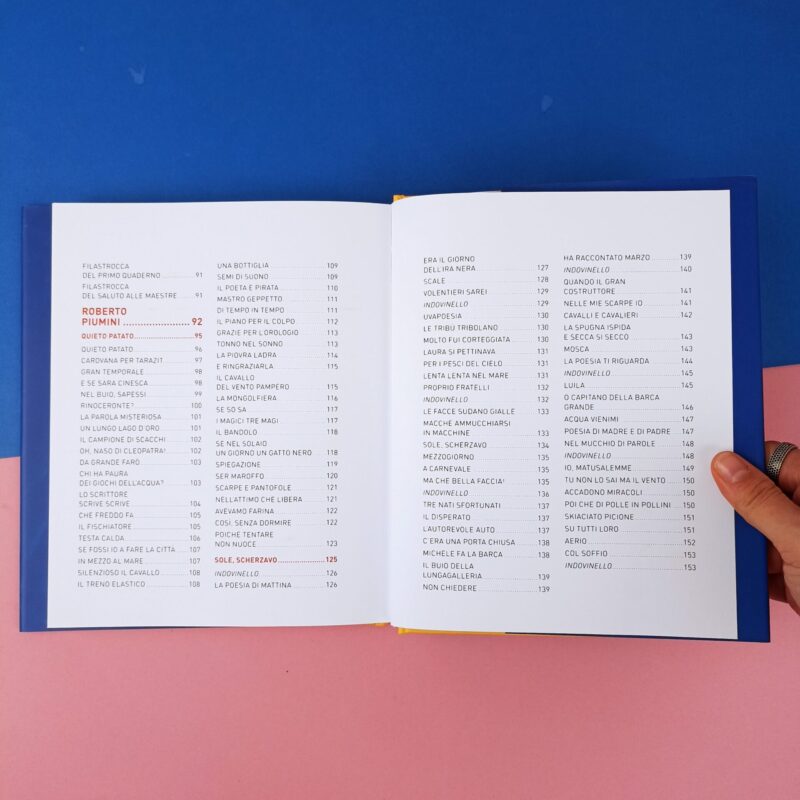 FILASTROCCA
DEL PRIMO QUADERNO 91
FILASTROCCA
DEL SALUTO ALLE MAESTRE 91
ROBERTO
PIUMINI 92
QUIETO PATATO 95
QUIETO PATATO 96
CAROVANA PER TARAZIT 97
GRAN TEMPORALE 98
E SE SARA CINESCA 98
NEL BUIO, SAPESSI 99
RINOCERONTE? 100
LA PAROLA MISTERIOSA 101
UN LUNGO LAGO D'ORO 101
IL CAMPIONE DI SCACCHI 102
OH, NASO DI CLEOPATRA! 102
DA GRANDE FARÒ 103
CHI HA PAURA
DEI GIOCHI DELL'ACQUA? 103
LO SCRITTORE
SCRIVE SCRIVE 104
CHE FREDDO FA 105
IL FISCHIATORE 105
TESTA CALDA 106
SE FOSSI IO A FARE LA CITTÀ 107
IN MEZZO AL MARE 107
SILENZIOSO IL CAVALLO 108
IL TRENO ELASTICO 108
UNA BOTTIGLIA 109
SEMI DI SUONO 109
IL POETA E PIRATA 110
MASTRO GEPPETTO 111
DI TEMPO IN TEMPO 111
IL PIANO PER IL COLPO 112
GRAZIE PER L'OROLOGIO 113
TONNO NEL SONNO 113
LA PIOVRA LADRA 114
E RINGRAZIARLA 115
IL CAVALLO
DEL VENTO PAMPERO 115
LA MONGOLFIERA 116
SE SO SA 117
I MAGICI TRE MAGI 117
IL BANDOLO 118
SE NEL SOLAIO
UN GIORNO UN GATTO NERO 118
SPIEGAZIONE 119
SER MAROFFO 120
SCARPE E PANTOFOLE 121
NELL'ATTIMO CHE LIBERA 121
AVEVAMO FARINA 122
COSÌ, SENZA DORMIRE 122
POICHÉ TENTARE
NON NUOCE 123
SOLE, SCHERZAVO 125
INDOVINELLO 126
LA POESIA DI MATTINA 126
ERA IL GIORNO
DELL'IRA NERA 127
SCALE 128
VOLENTIERI SAREI 129
INDOVINELLO 129
UVAPOESIA 130
LE TRIBÙ TRIBOLANO 130
MOLTO FUI CORTEGGIATA 130
LAURA SI PETTINAVA 131
PER I PESCI DEL CIELO 131
LENTA LENTA NEL MARE 131
PROPRIO FRATELLI 132
INDOVINELLO 132
LE FACCE SUDANO GIALLE 133
MACCHÉ AMMUCCHIARSI
IN MACCHINE 133
SOLE, SCHERZAVO 134
MEZZOGIORNO 135
A CARNEVALE 135
MA CHE BELLA FACCIA! 135
INDOVINELLO 136
TRE NATI SFORTUNATI 137
IL DISPERATO 137
L'AUTOREVOLE AUTO 137
C'ERA UNA PORTA CHIUSA 138
MICHELE FA LA BARCA 138
IL BUIO DELLA
LUNGAGALLERIA 139
NON CHIEDERE 139
HA RACCONTATO MARZO 139
INDOVINELLO 140
QUANDO IL GRAN
COSTRUTTORE 141
NELLE MIE SCARPE IO 141
CAVALLI E CAVALIERI 142
LA SPUGNA ISPIDA
E SECCA SI SECCÒ 143
MOSCA 143
LA POESIA TI RIGUARDA 144
INDOVINELLO 145
LUILA 145
O CAPITANO DELLA BARCA
GRANDE 146
ACQUA VIENIMI 147
POESIA DI MADRE E DI PADRE 147
NEL MUCCHIO DI PAROLE 148
INDOVINELLO 148
IO, MATUSALEMME 149
TU NON LO SAI MA IL VENTO 150
ACCADONO MIRACOLI 150
POI CHE DI POLLE IN POLLINI 150
SKIACIATO PICIONE 151
SU TUTTI LORO 151
AERIO 152
COL SOFFIO 153
INDOVINELLO 153